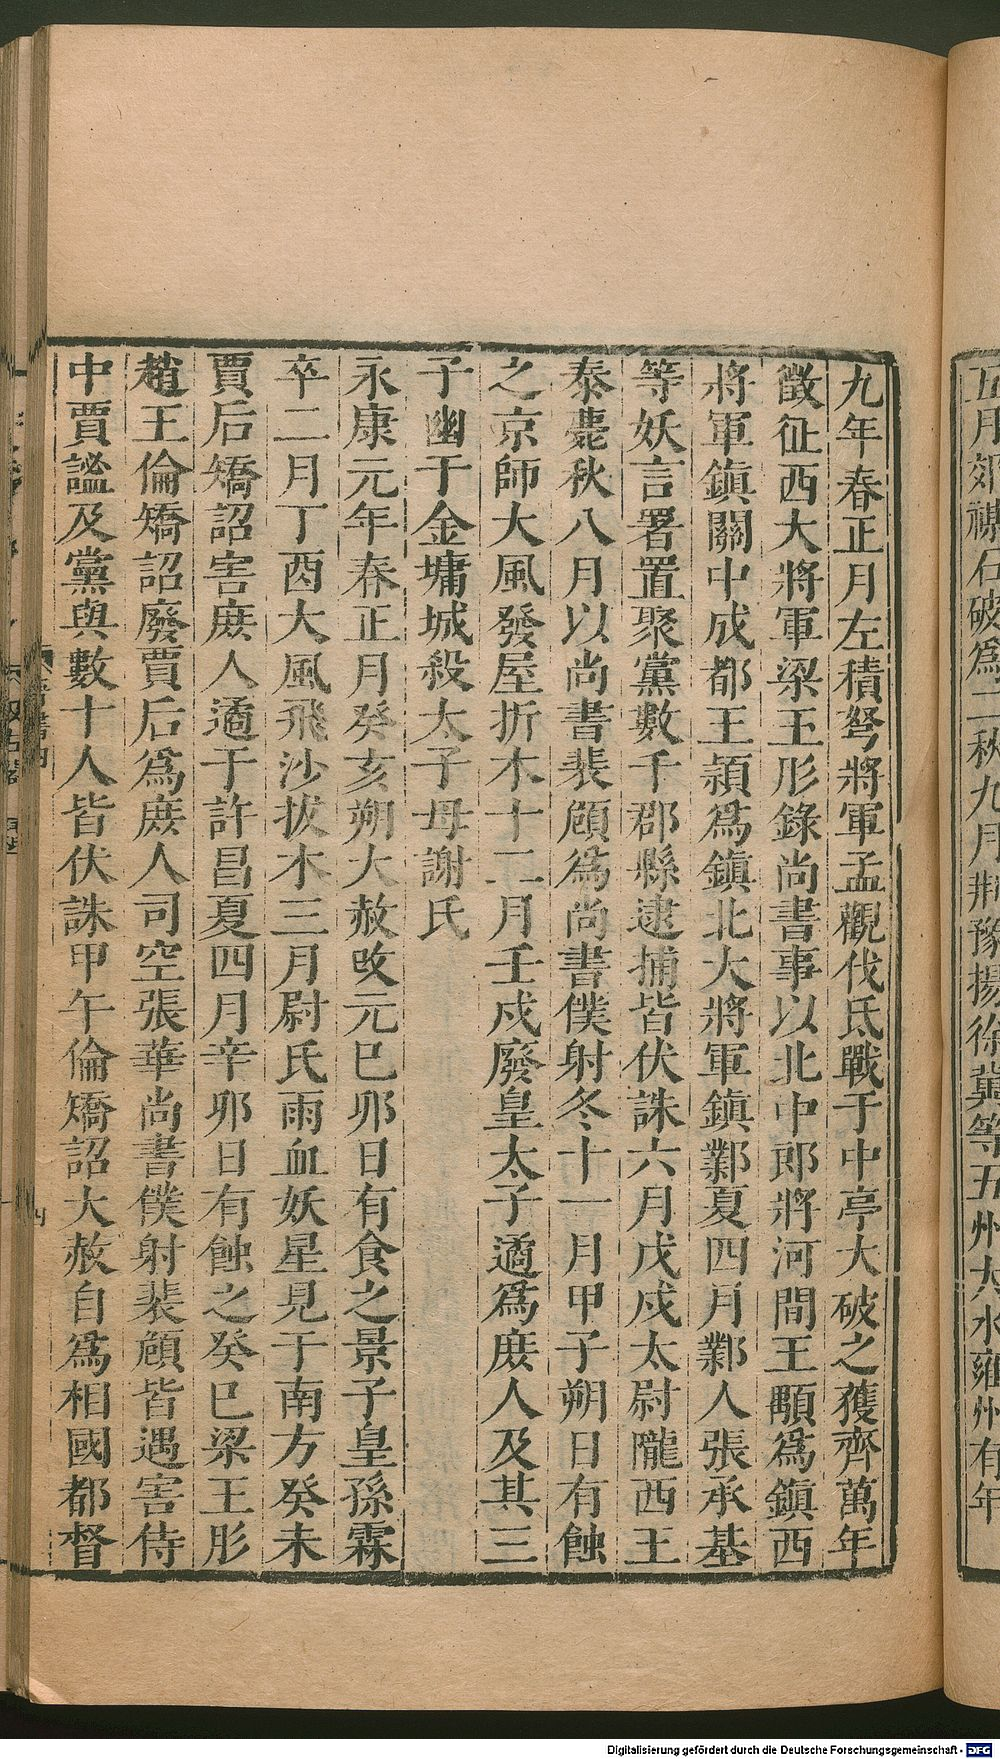 五月郊禖石破爲二秋九月荆豫揚徐冀等五州大水雍州有年
九年春正月左積弩將軍孟觀伐氐戰于中亭大破之獲齊萬年
徵征西大將軍梁王肜錄尚書事以北中郎將河間王顒爲鎮西
將軍鎮關中成都王頴爲鎮北大將軍鎮鄴夏四月鄴人張承基
等妖言署置聚黨數千郡縣逮捕皆伏誅六月戊戍太尉隴西王
泰薨秋八月以尚書裴頠爲尚書僕射冬十一月甲子朔日有蝕
之京師大風發屋折木十二月壬戍廢皇太子遹爲庶人及其三
子幽于金墉城殺太子母謝氏
永康元年春正月癸亥朔大赦改元已夘日有食之景子皇孫霖
卒二月丁酉大風飛沙拔木三月尉氏雨血妖星見于南方癸未
賈后矯詔害庶人遹于許昌夏四月辛夘日有蝕之癸巳梁王肜
趙王倫矯詔廢賈后爲庶人司空張華尚書僕射裴頠皆遇害侍
中賈謐及黨與數十人皆伏誅甲午倫矯詔大赦自爲相國都督
Digitalisierung gefördert durch die Deutsche Forschungsgemeinschaft - DFG